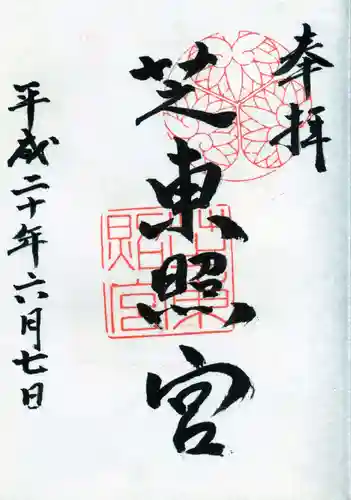 奉拝
芝東照宮
平成二十年六月七日
芝東照宮